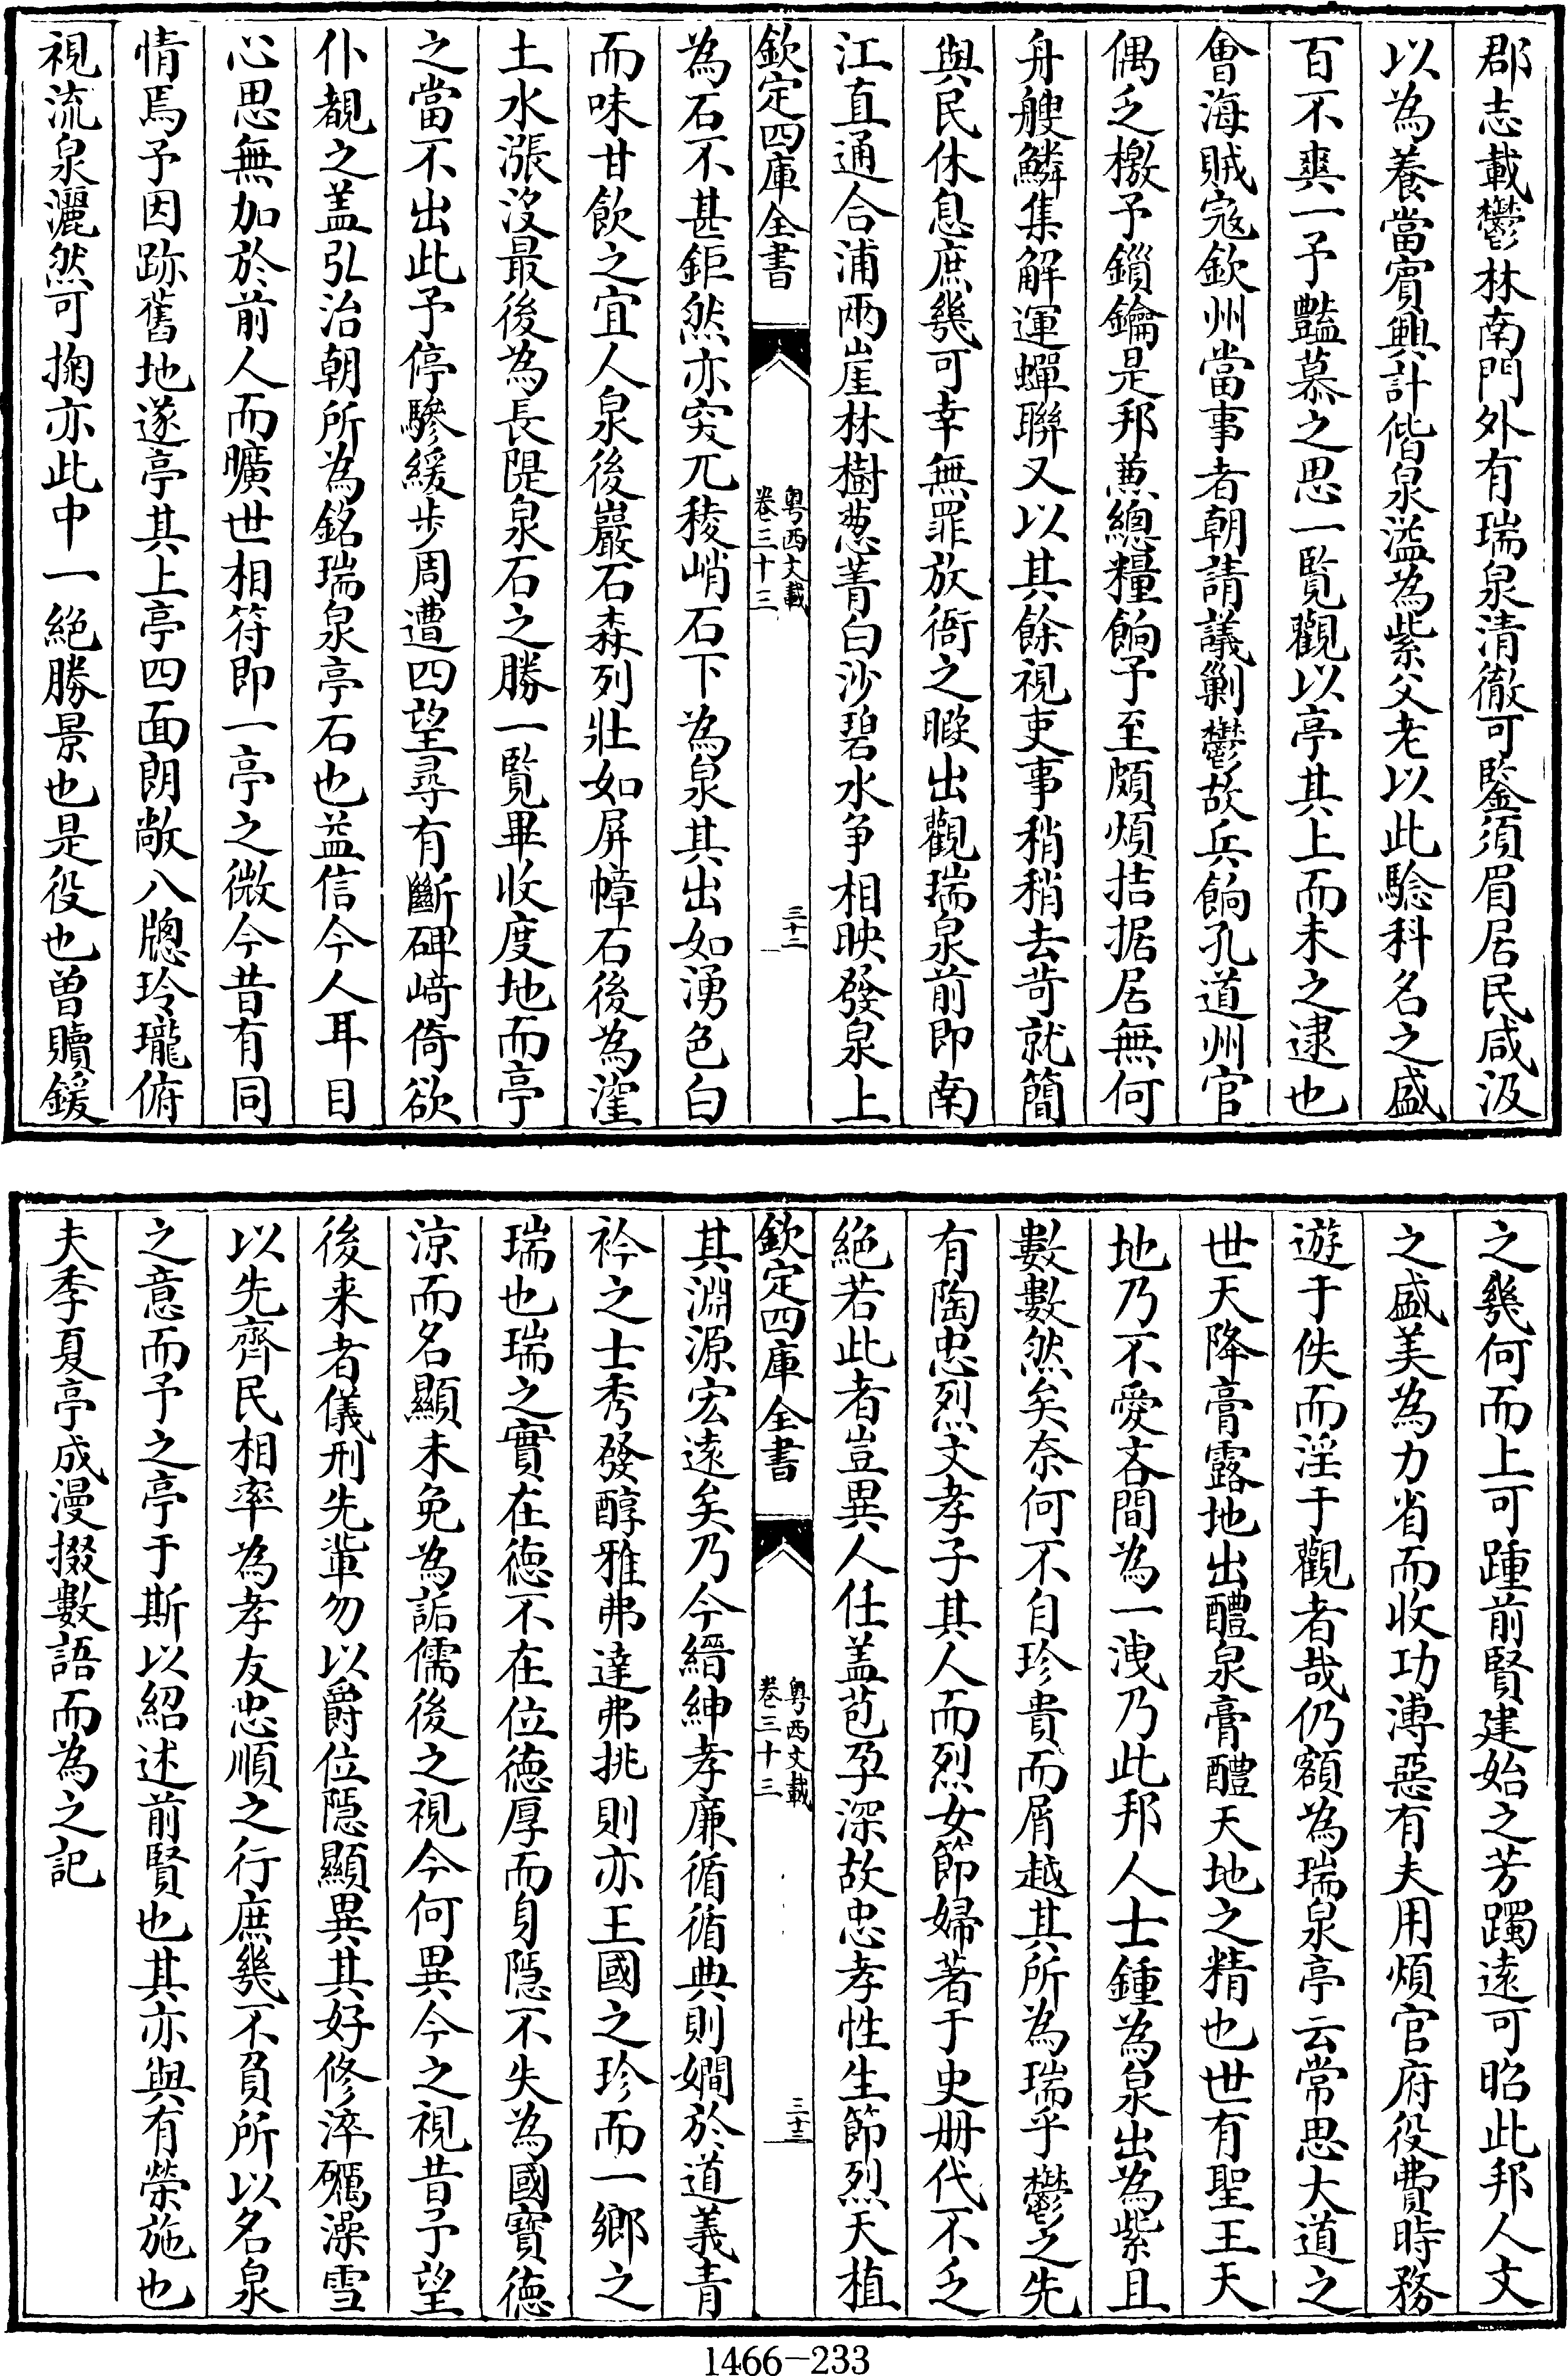 郡志載鬱林南門外有瑞泉清徹可鑒須眉居民咸汲
以為養當賔興計偕泉溢為紫父老以此騐科名之盛
百不爽一予豔慕之思一覧觀以亭其上而未之逮也
會海賊宼欽州當事者朝請議剿鬱故兵餉孔道州官
偶乏檄予鎻鑰是邦兼總糧餉予至頗煩拮据居無何
舟艘鱗集解運蟬聯又以其餘視吏事稍稍去苛就簡
與民休息庶幾可幸無罪放衙之暇出觀瑞泉前即南
江直通合浦兩崖林樹葱菁白沙碧水争相映發泉上
欽定四庫全書
粤西文載
卷三十三
三十二
為石不甚鉅然亦突兀稜峭石下為泉其出如湧色白
而味甘飲之宜人泉後巖石森列壯如屏幛石後為漥
土水漲沒最後為長隄泉石之勝一覧畢收度地而亭
之當不出此予停驂緩步周遭四望尋有斷碑﨑倚欲
仆覩之盖弘治朝所為銘瑞泉亭石也益信今人耳目
心思無加於前人而曠世相符即一亭之微今昔有同
情焉予因跡舊地遂亭其上亭四面朗敞八牕玲瓏俯
視流泉灑然可掬亦此中一絕勝景也是役也曾贖鍰
之幾何而上可踵前賢建始之芳躅遠可昭此邦人文
之盛美為力省而收功溥惡有夫用煩官府役費時務
遊于佚而淫于觀者哉仍額為瑞泉亭云常思大道之
世天降膏露地出醴泉膏醴天地之精也世有聖王天
地乃不愛吝間為一洩乃此邦人士鍾為泉出為紫且
數數然矣奈何不自珍貴而屑越其所為瑞乎鬱之先
有陶忠烈文孝子其人而烈女節婦著于史册代不乏
絕若此者豈異人任盖苞孕深故忠孝性生節烈天植
欽定四庫全書
粤西文載
卷三十三
三十三
其淵源宏遠矣乃今縉紳孝廉循循典則嫺於道義青
衿之士秀發醇雅弗達弗挑則亦王國之珍而一鄉之
瑞也瑞之實在徳不在位徳厚而身隠不失為國寳徳
涼而名顯未免為詬儒後之視今何異今之視昔予望
後来者儀刑先輩勿以爵位隠顯異其好修淬礪澡雪
以先齊民相率為孝友忠順之行庶幾不負所以名泉
之意而予之亭于斯以紹述前賢也其亦與有榮施也
夫季夏亭成漫掇數語而為之記
1466-233